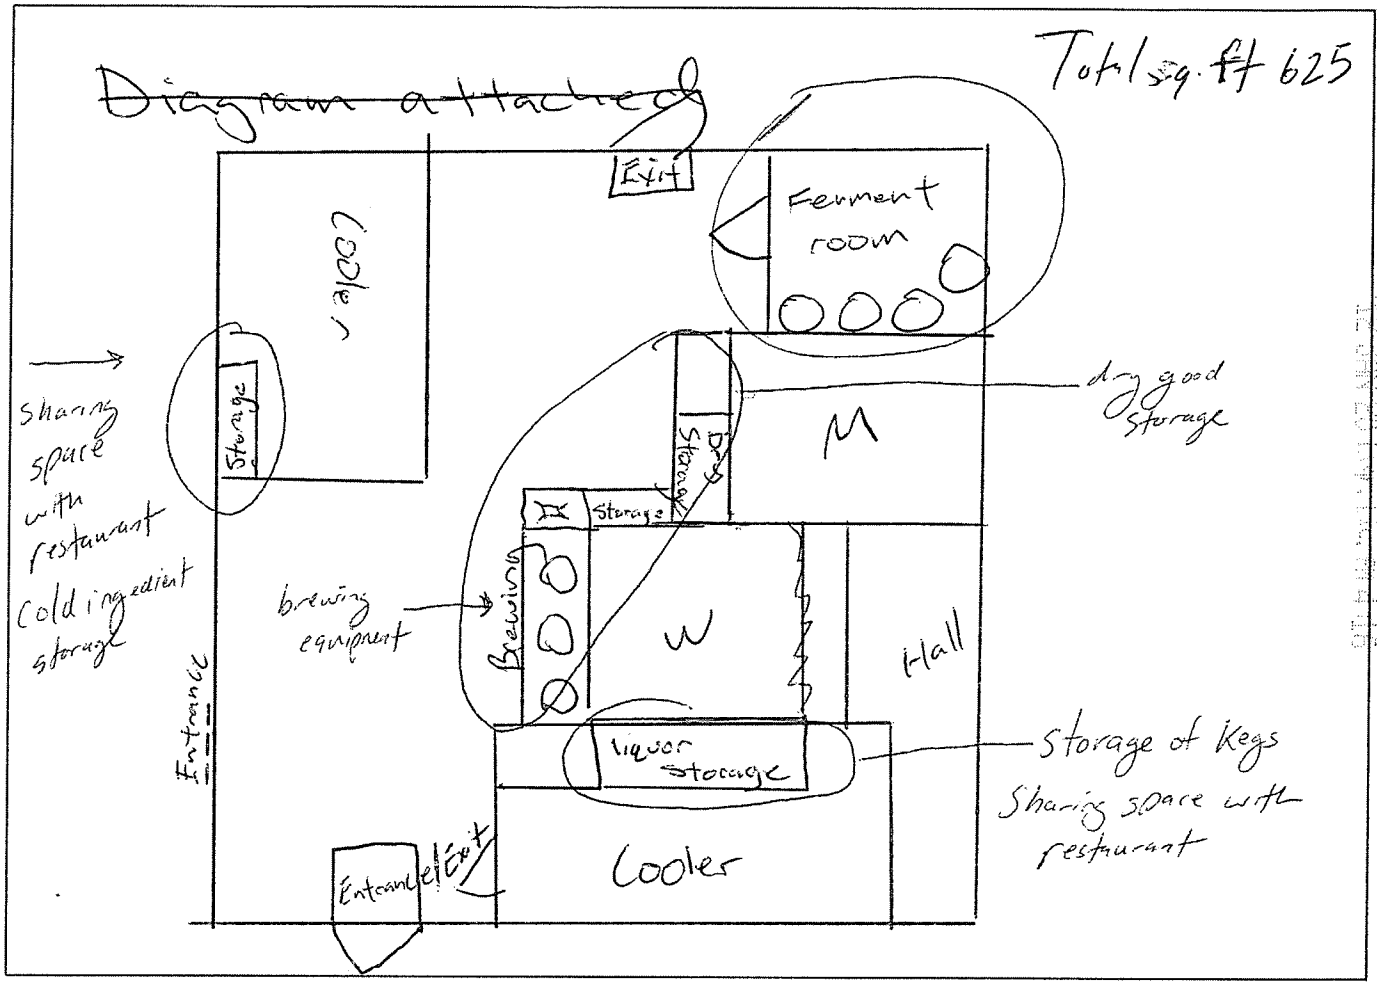 Total sq. ft 625
Diagram attached
Exit
Ferment
room
Cooler
Storage
sharing
space
with
restaurant
Cold ingredient
storage
dry good
storage
M
Dry
Storage
Storage
Brewing
brewing
equipment
W
Hall
Entrance
liquor
storage
Storage of Kegs
Sharing space with
restaurant
Cooler
Entrance/Exit